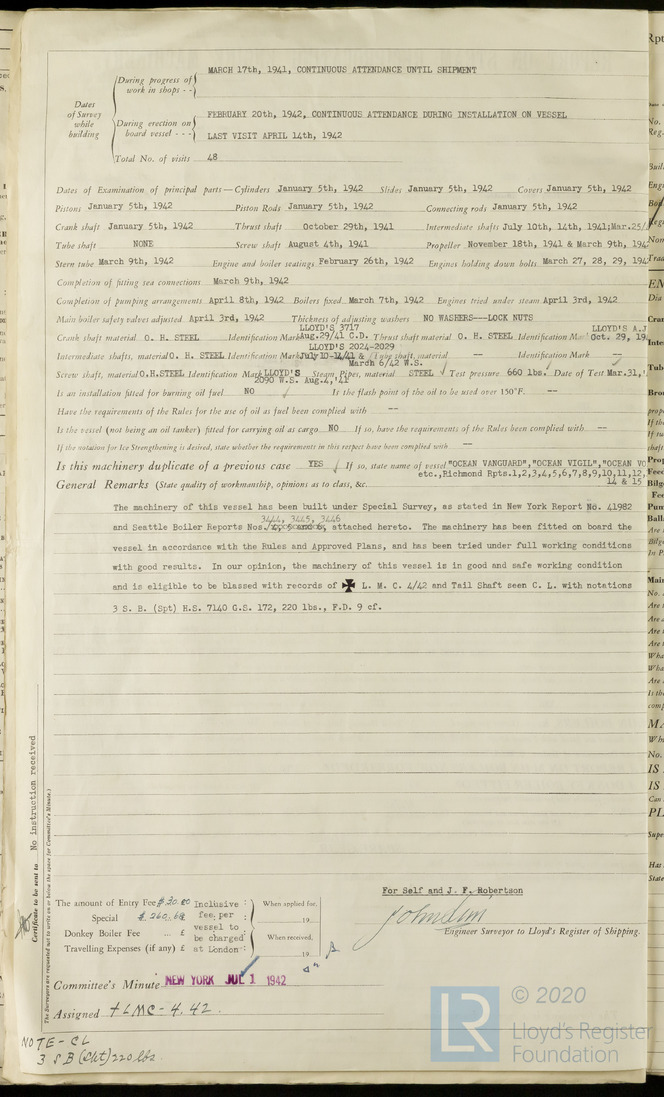 MARCH 17th, 1941, CONTINUOUS ATTENDANCE UNTIL SHIPMENT
During progress of work in shops - -
Dates of Survey while building
FEBRUARY 20th, 1942, CONTINUOUS ATTENDANCE DURING INSTALLATION ON VESSEL
During erection on board vessel - - -
LAST VISIT APRIL 14th, 1942
Total No. of visits 48
Dates of Examination of principal parts—Cylinders January 5th, 1942 Slides January 5th, 1942 Covers January 5th, 1942
Pistons January 5th, 1942 Piston Rods January 5th, 1942 Connecting rods January 5th, 1942
Crank shaft January 5th, 1942 Thrust shaft October 29th, 1941 Intermediate shafts July 10th, 14th, 1941;Mar.25/
Tube shaft NONE Screw shaft August 4th, 1941 Propeller November 18th, 1941 & March 9th, 194
Stern tube March 9th, 1942 Engine and boiler seatings February 26th, 1942 Engines holding down bolts March 27, 28, 29, 194
Completion of fitting sea connections March 9th, 1942
Completion of pumping arrangements April 8th, 1942 Boilers fixed March 7th, 1942 Engines tried under steam April 3rd, 1942
Main boiler safety valves adjusted April 3rd, 1942 Thickness of adjusting washers NO WASHERS---LOCK NUTS
LLOYD'S 3717 LLOYD'S A.J
Crank shaft material O. H. STEEL Identification Mark Aug.29/41 C.D. Thrust shaft material O. H. STEEL Identification Mar Oct. 29, 19
LLOYD'S 2024-2029
Intermediate shafts, material O. H. STEEL Identification Mark July 10-14/41 & Tube shaft, material -- Identification Mark --
March 6/42 W.S.
Screw shaft, material O.H.STEEL Identification Mark LLOYD'S Steam Pipes, material STEEL Test pressure 660 lbs. Date of Test Mar.31,'
2090 W.S. Aug.4,'41
Is an installation fitted for burning oil fuel NO Is the flash point of the oil to be used over 150°F. --
Have the requirements of the Rules for the use of oil as fuel been complied with --
Is the vessel (not being an oil tanker) fitted for carrying oil as cargo NO If so, have the requirements of the Rules been complied with --
If the notation for Ice Strengthening is desired, state whether the requirements in this respect have been complied with --
Is this machinery duplicate of a previous case YES If so, state name of vessel "OCEAN VANGUARD","OCEAN VIGIL","OCEAN VO
etc.,Richmond Rpts.1,2,3,4,5,6,7,8,9,10,11,12,
General Remarks (State quality of workmanship, opinions as to class, &c. 14 & 15
The machinery of this vessel has been built under Special Survey, as stated in New York Report No. 41982
3444, 3445, 3446
and Seattle Boiler Reports Nos. attached hereto. The machinery has been fitted on board the
vessel in accordance with the Rules and Approved Plans, and has been tried under full working conditions
with good results. In our opinion, the machinery of this vessel is in good and safe working condition
and is eligible to be blassed with records of ✠ L. M. C. 4/42 and Tail Shaft seen C. L. with notations
3 S. B. (Spt) H.S. 7140 G.S. 172, 220 lbs., F.D. 9 cf.
No instruction received
Certificate to be sent to
The Surveyors are requested not to write on or below the space for Committee's Minute.)
For Self and J. F. Robertson
Engineer Surveyor to Lloyd's Register of Shipping.
The amount of Entry Fee $30.00 Inclusive : When applied for,
Special $ 260.68 fee per 19
Donkey Boiler Fee ... £ vessel to be charged When received,
Travelling Expenses (if any) £ at London : 19
Committee's Minute NEW YORK JUL 1 1942
Assigned +LMC-4.42.
NOTE - CL
3 SB (Spt) 220 lbs.
© 2020
LR
Lloyd's Register
Foundation